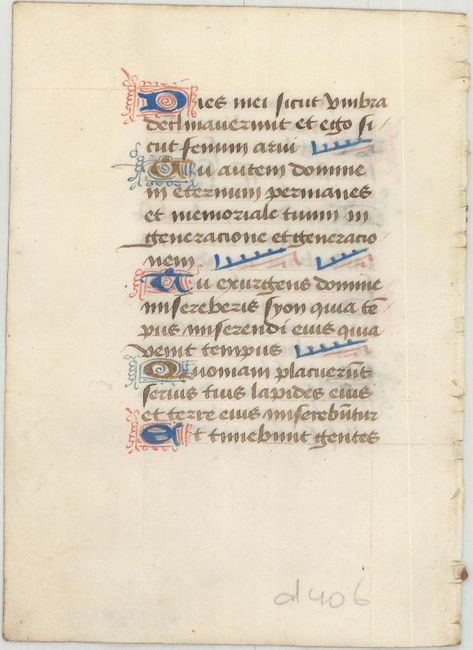 Dies mei sicut vmbra
declinauerunt et ego si
cut fenum arui
Tu autem domine
in eternum permanes
et memoriale tuum in
generacione et generacio
nem.
Tu exurgens domine
misereberis syon quia tē
pus miserendi eius quia
venit tempus
Quoniam placuerūt
seruis tuis lapides eius
et terre eius miserebūtur
Et timebunt gentes
d406